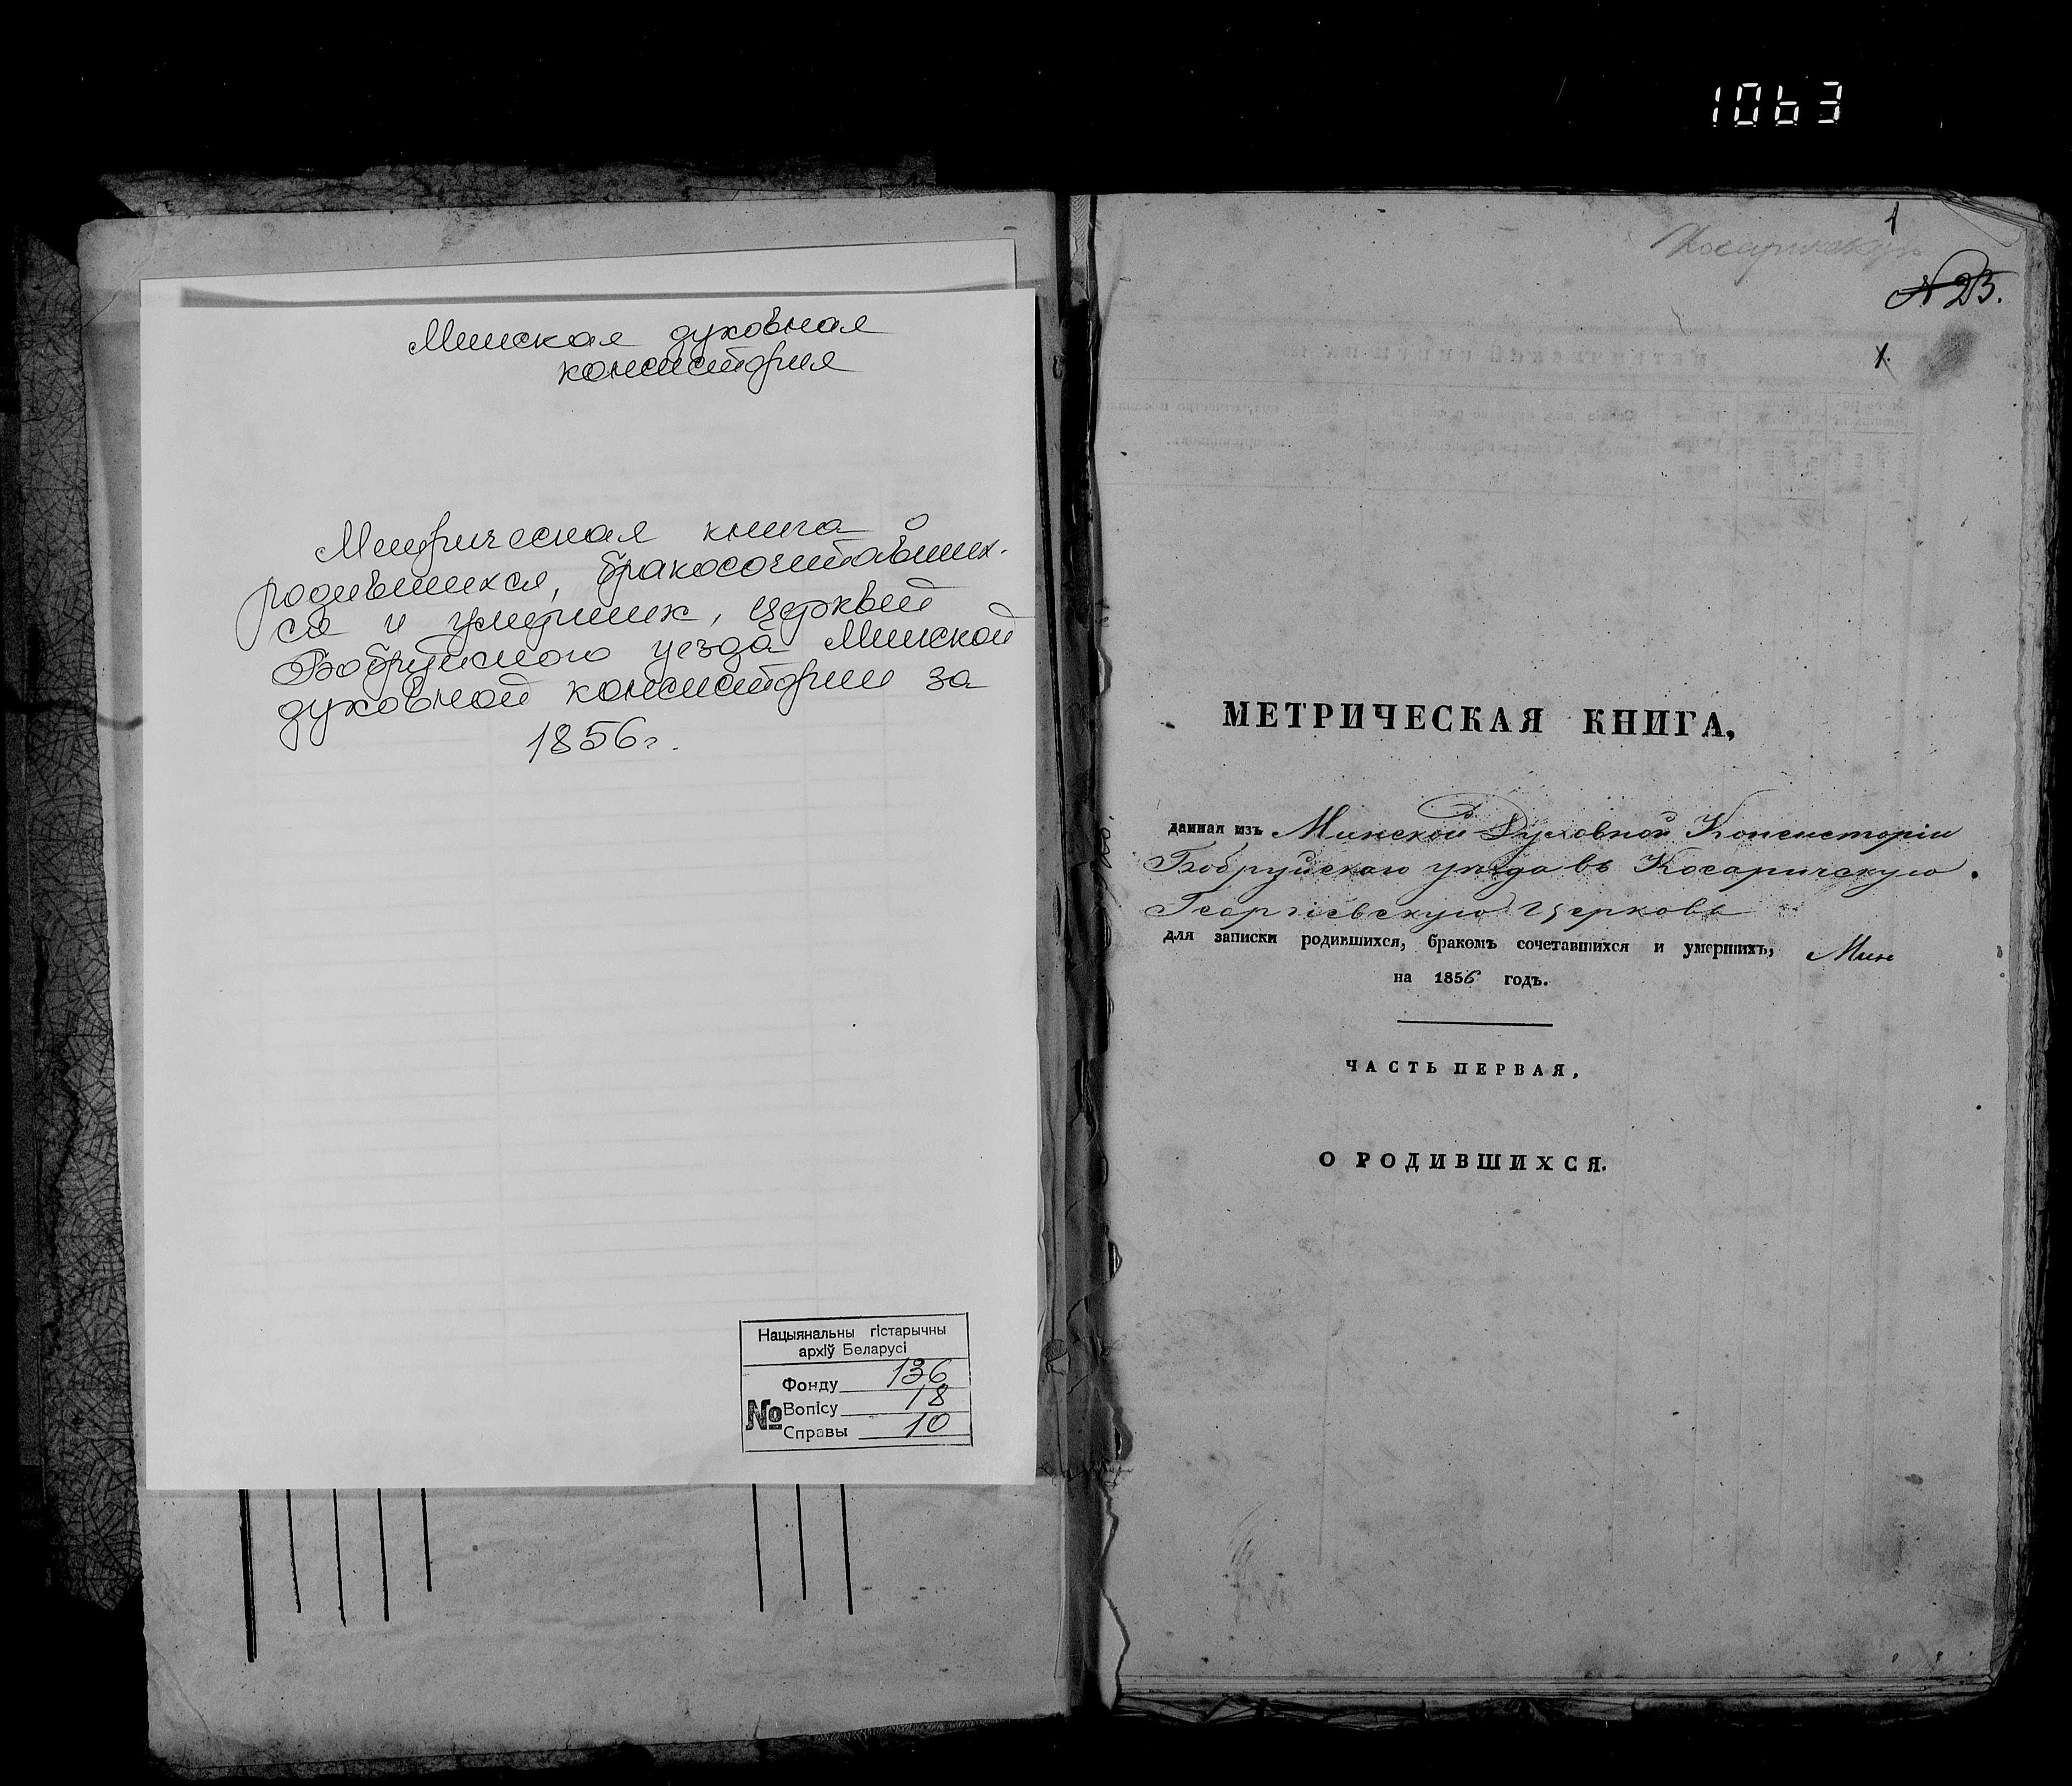 1063
Минская духовная
консистория
Метрическая книга о
родившихся, бракосочитавших-
ся и умерших, церквей
Бобруйского уезда Минской
духовной консистории за
1856г.
Нацыянальны гістарычны
архіў Беларусі
Фонду 136
№ Вопісу 18
Справы 10
1
Косаричскую
№ 23.
1.
МЕТРИЧЕСКАЯ КНИГА,
данная изъ Минской Духовной Консисторіи
Бобруйскаго уѣзда въ Косаричскую
Георгіевскую Церковь
для записки родившихся, бракомъ сочетавшихся и умершихъ, Мин
на 1856 годъ.
ЧАСТЬ ПЕРВАЯ,
О РОДИВШИХСЯ.